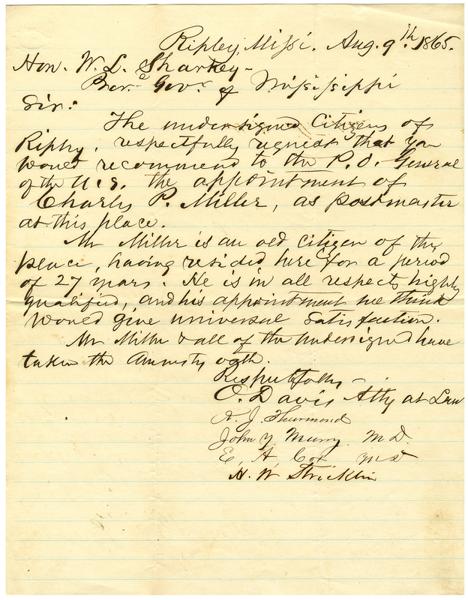 Ripley, Missi. Aug. 9th. 1865.
Hon. W. L. Sharkey
Gov. of Mississippi
Sir:
The undersigned Citizens of
Ripley, respectfully request that you
would recommend to the P. O. General
of the U.S. the appointment of
Charles P. Miller, as postmaster
at this place.
Mr Miller is an old citizen of this
place, having resided here for a period
of 27 years. He is in all respects highly
qualified, and his appointment we think
would give universal satisfaction.
Mr Miller & all of the undersigned have
taken the Amnesty oath.
Respectfully
O. Davis Atty at Law
A. J. Thurmond
John Y. Murry M.D.
E. A. Cox M.D
H. W. Stricklin